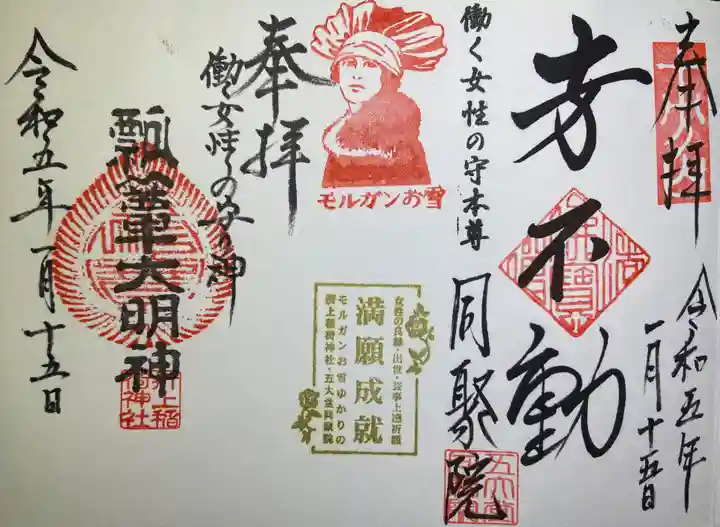 奉拝
令和五年
一月十五日
劳不動
働く女性の守本尊
同聚院
モルガンお雪
女性の良縁・出世・芸事上達祈願
満願成就
モルガンお雪ゆかりの
折上稲荷神社・五大堂同聚院
奉拝
働く女性の守り神
瓢箪大明神
折上稲
荷神社
令和五年一月十五日